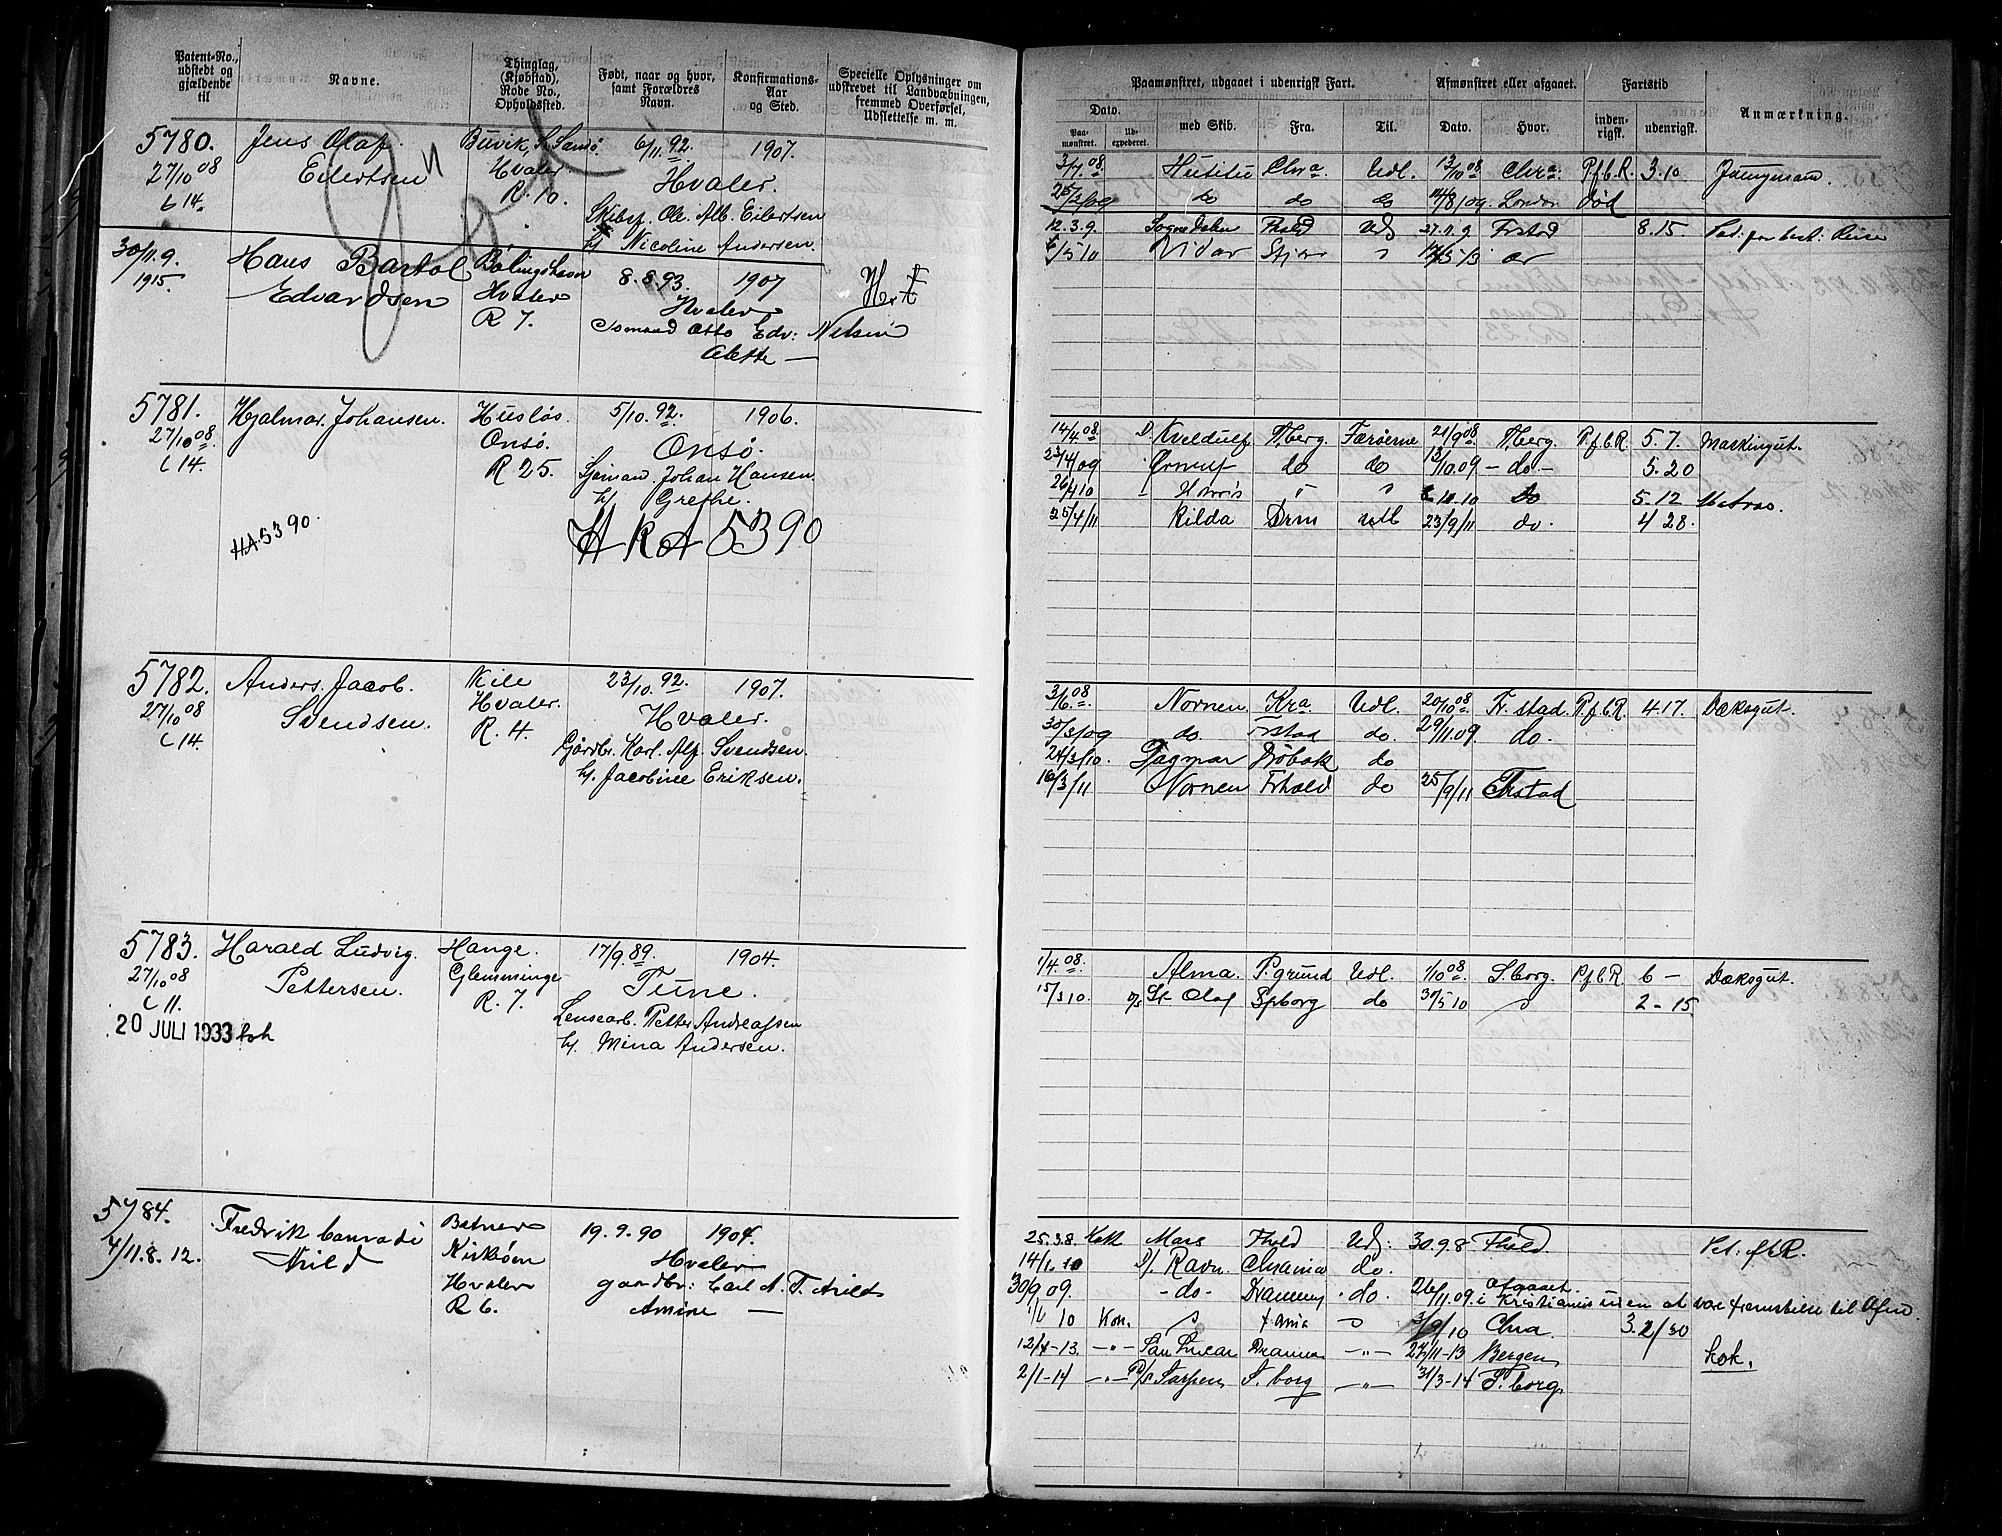 Patent-No., udstedt og gjældende til
Navne.
Thinglag, (Kjøbstad), Rode No., Opholdssted.
Født, naar og hvor, samt Forældres Navn.
Konfirmations- Aar og Sted.
Specielle Oplysninger om udskrevet til Landvæbningen, fremmed Overførsel, Udslettelse m. m.
5780. Jens Olaf Buvik, S. Sandø. 6/11. 92. 1907.
27/10 08 Eilertsen Hvaler Hvaler.
t 14. R. 10.
Skibsf. Ole Alb. Eilertsen
h/ Nicoline Andersen.
Død
30/11.9. Hans Bartol
1915. Edvardsen Hvaler 8.8.93. 1907
R 7. Hvaler
Otto Edv: Nilsen
Alette —
5781. Hjalmar Johansen. Husløs 5/10. 92. 1906.
27/10 08 Onsø. Onsø.
t 14. R 25. Sjømand Johan Hansen
h/ Grethe.
HA 5390. H R A 5390
5782. Anders Jacob Kile 23/10. 92. 1907.
27/10 08 Svendsen. Hvaler. Hvaler.
t 14. R. 4. Gårdbr. Karl Alf. Svendsen.
h/ Jacobine Eriksen.
5783. Harald Ludvig Hange. 17/9. 89. 1904.
27/10 08 Pettersen. Glemminge Tune.
t 11. R. 7. Lensearb. Petter Andreassen
20 JULI 1933 h/ Mina Andersen.
5784. Fredrik Conradi 19.9.90 1904.
4/11.8. 12. Arild Kirkøen Hvaler
Hvaler gaardbr: Carl A. T. Arild
R 6. Amine —
Paamønstret, udgaaet i udenrigsk Fart.
Afmønstret eller afgaaet.
Fartstid
Anmærkning.
Dato.
Paa-mønstret.
Ud-expederet.
med Skib.
Fra.
Til.
Dato.
Hvor.
inden-rigsk.
udenrigsk.
3/7. 08 Chra Udl. 13/10 08 Chra P.f.b.R. 3.10 Jungmand.
25/2/09 do do do 14/8/09 London død
12.3.9. Sognedalen Fhald Ud 27.11.9 Frstad 8.15.
6/5 10 Vidar
14/4 08. D. Kveldulf Tberg. Færøerne 21/9 08 Tberg. P.f.b.R 5.7. Maskingut.
23/4/09 Ørnulf do do 13/10.09 — do — 5.20
26/4 10 10.10 do 5.12 Matros.
25/4/11 Kilda Drm udl 23/9/11 do. 4 28.
3/6. 08 Nornen Kra Udl. 20/10 08 Fr.stad. P.f.b.R. 4.17. Dæksgut.
30/3/09 do Frstad do. 29/11.09. do.
24/3/10. Dagmar Drøbak do
16/3/11 Nornen Frhald do 25/9/11 Frstad
1/4. 08. Alma. P.grund Udl. 1/10 08 S.borg. P.f.b.R 6 — Dæksgut.
15/3 10. St. Olaf Spborg do 31/5 10 2 - 15.
25.3.8. Kok Mars Fhald Udl: 30.9.8 Fhald Pat: f.b.R.
14/1 10 D/. Ravn. Chania do.
30/9 09. — do — Drammen do. 26/11.09. afgaaet i Kristiania uden at
1/6 10 Kok. 3/9/10 Chra. 3. 2/30
12/4-13. —"— San Lucar Drammen —"— 27/11-13 Bergen kok.
2/1-14 —"— D/S Sarpen S. borg —"— 31/3-14 S. borg.